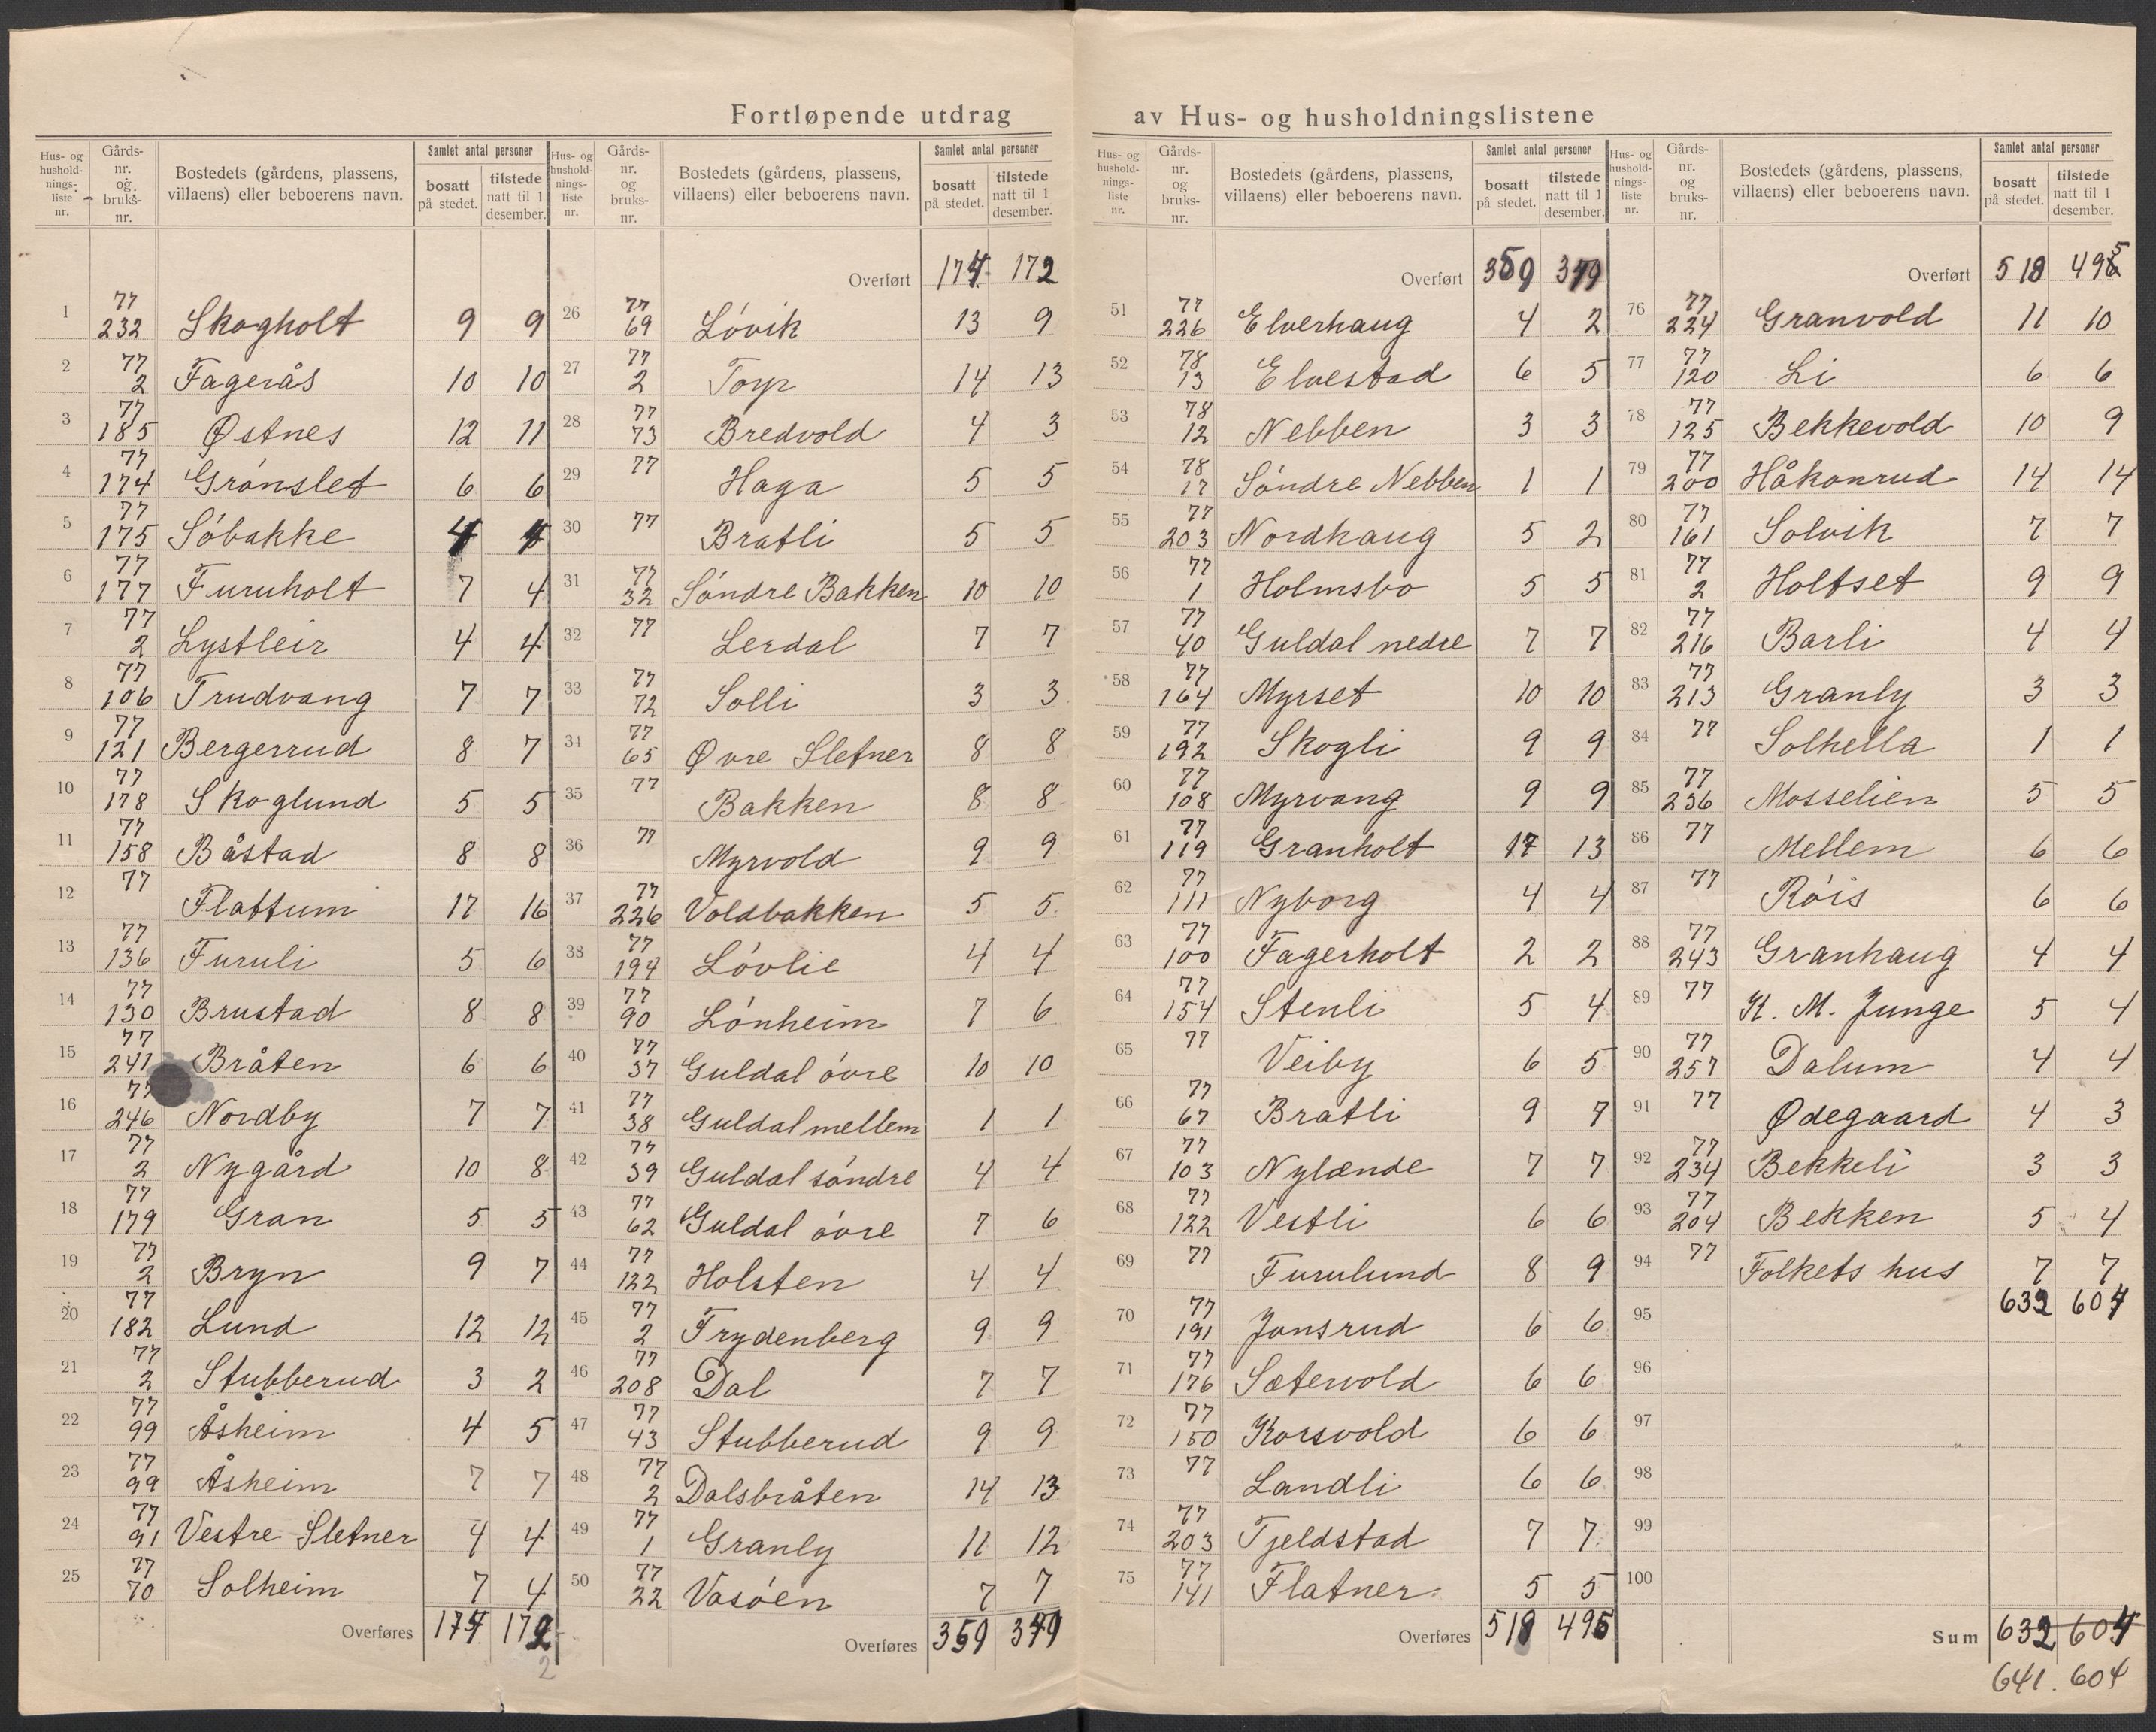 Fortløpende utdrag av Hus- og husholdningslistene
Hus- og husholdnings-liste nr. | Gårds-nr. og bruks-nr. | Bostedets (gårdens, plassens, villaens) eller beboerens navn. | Samlet antal personer | bosatt på stedet. | tilstede natt til 1 desember.
1 77 232 Skogholt 9 9
2 77 2 Fagerås 10 10
3 77 185 Østnes 12 11
4 77 174 Grønslet 6 6
5 77 175 Søbakke 4 4
6 77 177 Furuholt 7 4
7 77 2 Lystleir 4 4
8 77 106 Trudvang 7 7
9 77 121 Bergerrud 8 7
10 77 178 Skoglund 5 5
11 77 158 Båstad 8 8
12 77 Flattum 17 16
13 77 136 Furuli 5 6
14 77 130 Brustad 8 8
15 77 241 Bråten 6 6
16 77 246 Nordby 7 7
17 77 2 Nygård 10 8
18 77 179 Gran 5 5
19 77 2 Bryn 9 7
20 77 182 Lund 12 12
21 77 2 Stubberud 3 2
22 77 99 Åsheim 4 5
23 77 99 Åsheim 7 7
24 77 91 Vestre Sletner 4 4
25 77 70 Solheim 7 4
Overføres 177 172
2
Hus- og husholdnings-liste nr. | Gårds-nr. og bruks-nr. | Bostedets (gårdens, plassens, villaens) eller beboerens navn. | Samlet antal personer | bosatt på stedet. | tilstede natt til 1 desember.
Overført 177 172
26 77 69 Løvik 13 9
27 77 2 Torp 14 13
28 77 73 Bredvold 4 3
29 77 Haga 5 5
30 77 Bratli 5 5
31 77 32 Søndre Bakken 10 10
32 77 Lerdal 7 7
33 77 72 Solli 3 3
34 77 65 Øvre Sletner 8 8
35 77 Bakken 8 8
36 77 Myrvold 9 9
37 77 226 Voldbakken 5 5
38 77 194 Løvlie 4 4
39 77 90 Lønheim 7 6
40 77 37 Guldal øvre 10 10
41 77 38 Guldal mellem 1 1
42 77 39 Guldal søndre 4 4
43 77 62 Guldal øvre 7 6
44 77 122 Holsten 4 4
45 77 2 Frydenberg 9 9
46 77 208 Dal 7 7
47 77 43 Stubberud 9 9
48 77 2 Dalsbråten 14 13
49 77 1 Granly 11 12
50 77 22 Vasøen 7 7
Overføres 359 349
Hus- og husholdnings-liste nr. | Gårds-nr. og bruks-nr. | Bostedets (gårdens, plassens, villaens) eller beboerens navn. | Samlet antal personer | bosatt på stedet. | tilstede natt til 1 desember.
Overført 359 349
51 77 226 Elverhaug 4 2
52 78 13 Elvestad 6 5
53 78 12 Nebben 3 3
54 78 17 Søndre Nebben 1 1
55 77 203 Nordhaug 5 2
56 77 1 Holmsbo 5 5
57 77 40 Guldal nedre 7 7
58 77 164 Myrset 10 10
59 77 192 Skogli 9 9
60 77 108 Myrvang 9 9
61 77 119 Granholt 17 13
62 77 111 Nyborg 4 4
63 77 100 Fagerholt 2 2
64 77 154 Stenli 5 4
65 77 Veiby 6 5
66 77 67 Bratli 9 7
67 77 103 Nylænde 7 7
68 77 122 Vestli 6 6
69 77 Furulund 8 9
70 77 191 Jonsrud 6 6
71 77 176 Sætervold 6 6
72 77 150 Korsvold 6 6
73 77 Landli 6 6
74 77 203 Tjeldstad 7 7
75 77 141 Flatner 5 5
Overføres 518 495
Hus- og husholdnings-liste nr. | Gårds-nr. og bruks-nr. | Bostedets (gårdens, plassens, villaens) eller beboerens navn. | Samlet antal personer | bosatt på stedet. | tilstede natt til 1 desember.
Overført 518 495
76 77 224 Granvold 11 10
77 77 120 Li 6 6
78 77 125 Bekkevold 10 9
79 77 200 Håkonrud 14 14
80 77 161 Solvik 7 7
81 77 2 Holtset 9 9
82 77 216 Barli 4 4
83 77 213 Granly 3 3
84 77 Solhella 1 1
85 77 236 Mosselien 5 5
86 77 Mellem 6 6
87 77 Røis 6 6
88 77 243 Granhaug 4 4
89 77 K. M. Junge 5 4
90 77 257 Dalum 4 4
91 77 Ødegaard 4 3
92 77 234 Bekkeli 3 3
93 77 204 Bekken 5 4
94 77 Folkets hus 7 7
95 632 604
96
97
98
99
100
Sum 632 604
641. 604